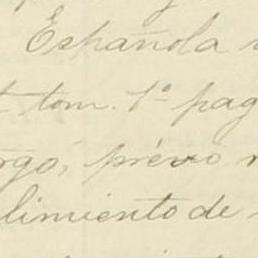 Española
tom. 1º pag
rgó, prévio
limiento de